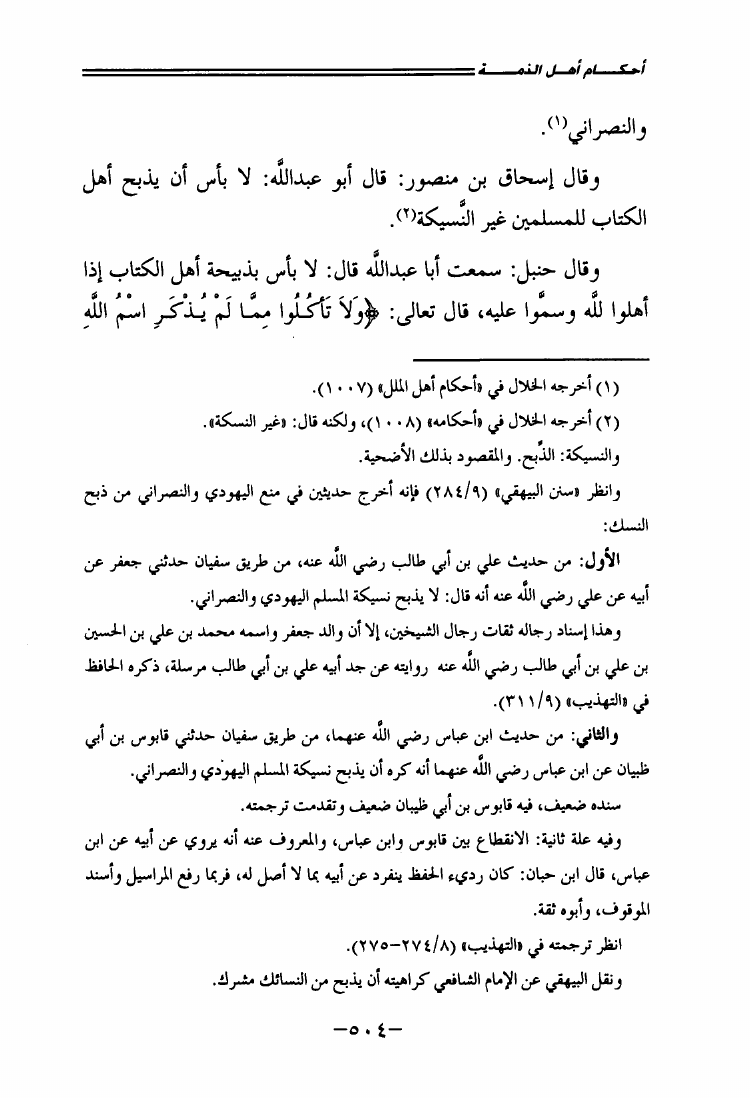 أحكـــام أهـــل الذمـــــة
والنصراني(١).
وقال إسحاق بن منصور: قال أبو عبداللَّه: لا بأس أن يذبح أهل
الكتاب للمسلمين غير النَّسيكة(٢).
وقال حنبل: سمعت أبا عبداللَّه قال: لا بأس بذبيحة أهل الكتاب إذا
أهلوا للَّه وسمَّوا عليه، قال تعالى: ﴿وَلَا تَأْكُلُوا مِمَّا لَمْ يُذْكَرِ اسْمُ اللَّهِ
(١) أخرجه الخلال في «أحكام أهل الملل» (١٠٠٧).
(٢) أخرجه الخلال في «أحكامه» (١٠٠٨)، ولكنه قال: «غير النسكة».
والنسيكة: الذَّبح. والمقصود بذلك الأضحية.
وانظر «سنن البيهقي» (٢٨٤/٩) فإنه أخرج حديثين في منع اليهودي والنصراني من ذبح
النسك:
الأول: من حديث علي بن أبي طالب رضي اللَّه عنه، من طريق سفيان حدثني جعفر عن
أبيه عن علي رضي اللَّه عنه أنه قال: لا يذبح نسيكة المسلم اليهودي والنصراني.
وهذا إسناد رجاله ثقات رجال الشيخين، إلا أن والد جعفر واسمه محمد بن علي بن الحسين
بن علي بن أبي طالب رضي اللَّه عنه روايته عن جد أبيه علي بن أبي طالب مرسلة، ذكره الحافظ
في «التهذيب» (٣١١/٩).
والثاني: من حديث ابن عباس رضي اللَّه عنهما، من طريق سفيان حدثني قابوس بن أبي
ظبيان عن ابن عباس رضي اللَّه عنهما أنه كره أن يذبح نسيكة المسلم اليهودي والنصراني.
سنده ضعيف، فيه قابوس بن أبي ظيبان ضعيف وتقدمت ترجمته.
وفيه علة ثانية: الانقطاع بين قابوس وابن عباس، والمعروف عنه أنه يروي عن أبيه عن ابن
عباس، قال ابن حبان: كان رديء الحفظ ينفرد عن أبيه بما لا أصل له، فربما رفع المراسيل وأسند
الموقوف، وأبوه ثقة.
انظر ترجمته في «التهذيب» (٢٧٤/٨-٢٧٥).
ونقل البيهقي عن الإمام الشافعي كراهيته أن يذبح من النسائك مشرك.
–٥٠٤–